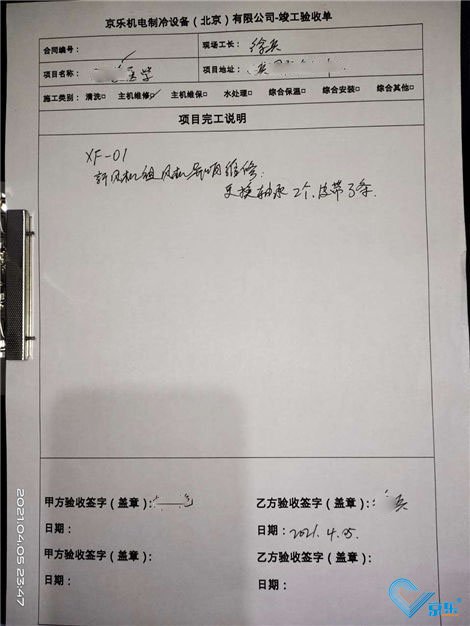 京乐机电制冷设备（北京）有限公司-竣工验收单
合同编号： 现场工长：
项目名称： 项目地址：
施工类别： 清洗□ 主机维修☑ 主机维保□ 水处理□ 综合保温□ 综合安装□ 综合其他□
项目完工说明
XF-01
新风机组风机异响维修.
更换轴承2个、皮带3条.
甲方验收签字（盖章）: 乙方验收签字（盖章）:
日期： 日期：2021.4.05.
甲方验收签字（盖章）： 乙方验收签字（盖章）：
日期： 日期：
2021.04.05 23:47
京乐